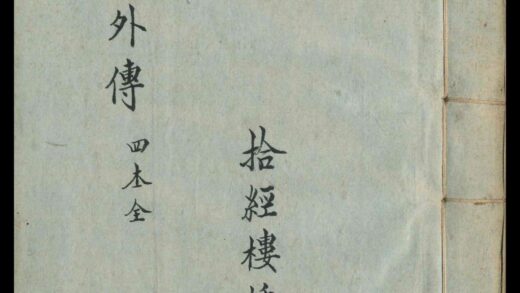 拾經樓
外傳
四本全